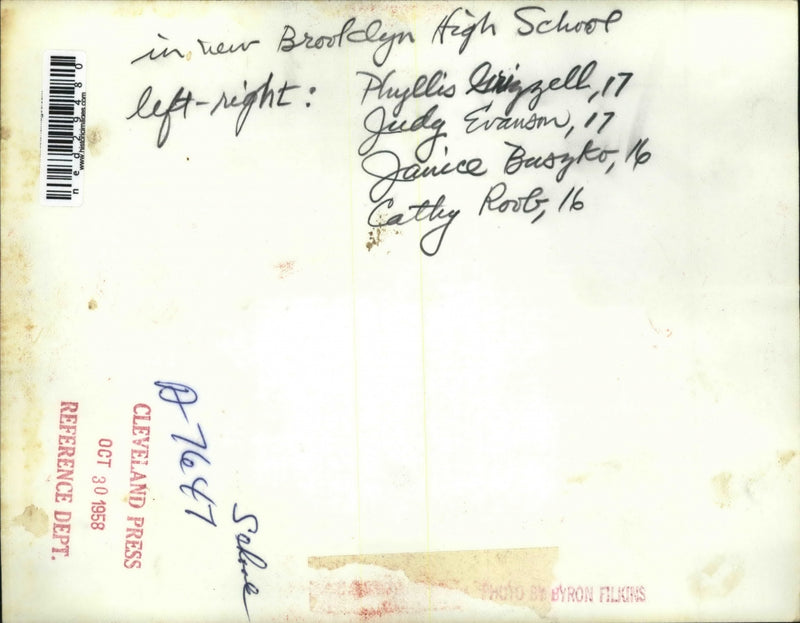 in new Brooklyn High School
left-right: Phyllis Grizzell, 17
Judy Evanson, 17
Janice Buszko, 16
Cathy Roob, 16
ned29480
www.historicimages.com
A-7647
School
CLEVELAND PRESS
OCT 30 1958
REFERENCE DEPT.
PHOTO BY BYRON FILKINS